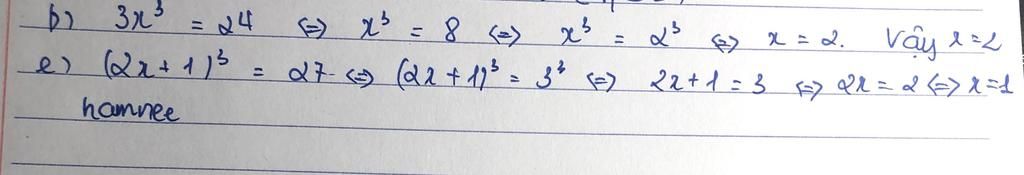 b) 3x³ = 24 <=> x³ = 8 <=> x³ = 2³ <=> x = 2. Vậy x = 2
e) (2x + 1)³ = 27 <=> (2x + 1)³ = 3³ <=> 2x + 1 = 3 <=> 2x = 2 <=> x = 1
hamnee